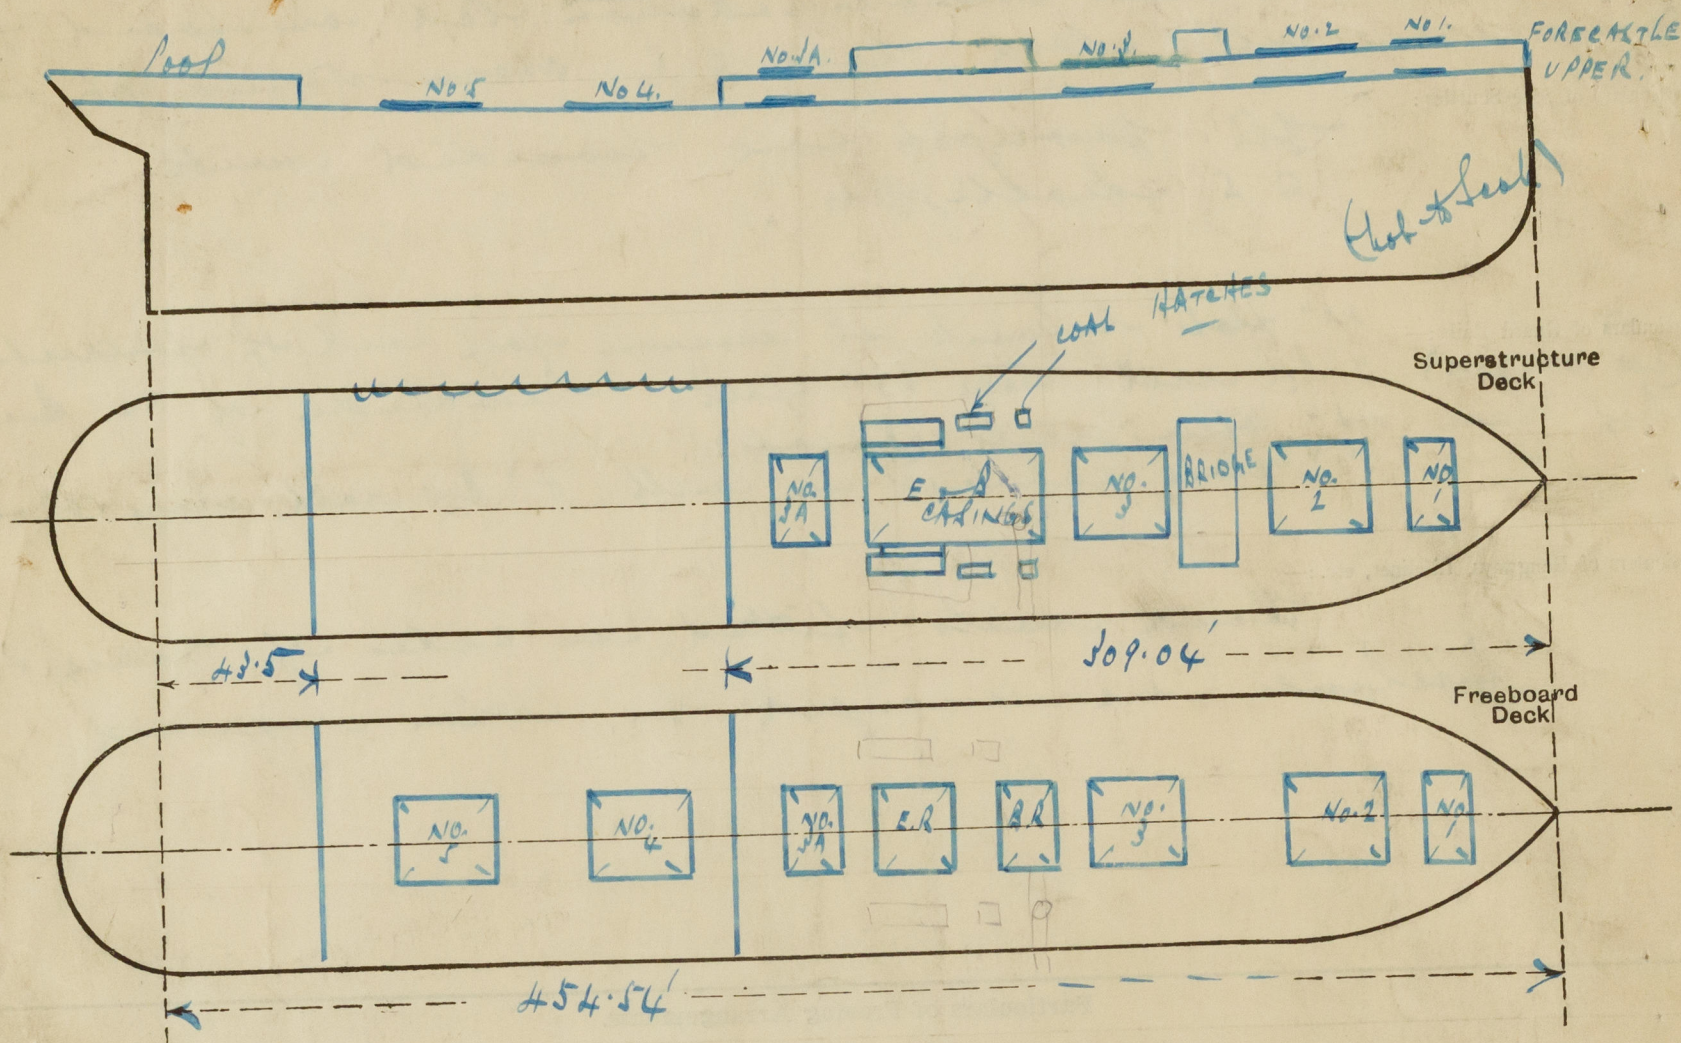 Poop
No.5
No 4.
No.3A.
No.3.
No.2
No 1.
FORECASTLE
UPPER.
(Not to Scale)
COAL HATCHES
Superstructure
Deck
NO.
3A
E & B
CASINGS
NO.
3
BRIDGE
NO.
2
NO
1
43.5
309.04'
Freeboard
Deck
NO.
5
NO.
4
NO.
3A
E.R
B.R
NO.
3
No.2
NO
1
454.54'